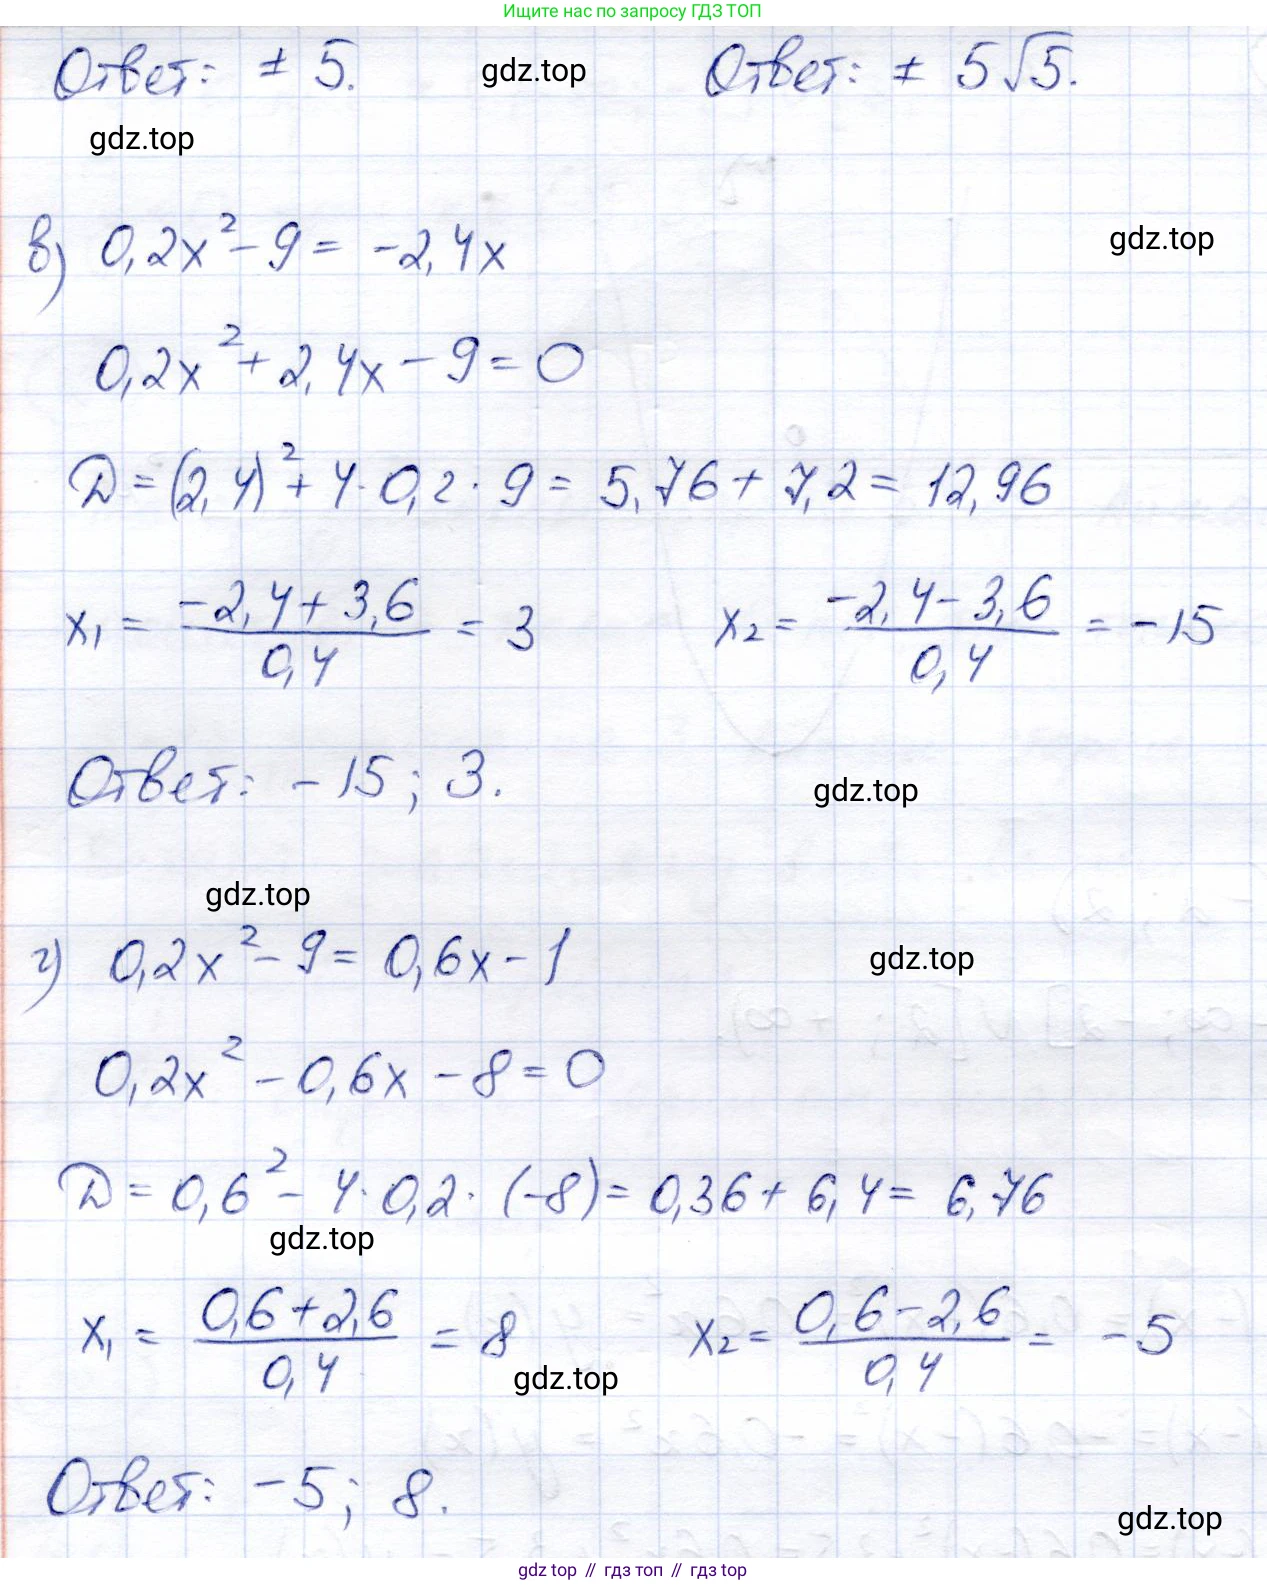 Ищите нас по запросу ГДЗ ТОП
Ответ: ± 5.
gdz.top
Ответ: ± 5√5.
gdz.top
в) 0,2x² - 9 = -2,4x
gdz.top
0,2x² + 2,4x - 9 = 0
D = (2,4)² + 4 · 0,2 · 9 = 5,76 + 7,2 = 12,96
x₁ = (-2,4 + 3,6)/0,4 = 3
x₂ = (-2,4 - 3,6)/0,4 = -15
Ответ: -15; 3.
gdz.top
gdz.top
г) 0,2x² - 9 = 0,6x - 1
gdz.top
0,2x² - 0,6x - 8 = 0
D = 0,6² - 4 · 0,2 · (-8) = 0,36 + 6,4 = 6,76
gdz.top
x₁ = (0,6 + 2,6)/0,4 = 8
x₂ = (0,6 - 2,6)/0,4 = -5
gdz.top
Ответ: -5; 8.
gdz.top
gdz top // гдз топ // gdz top